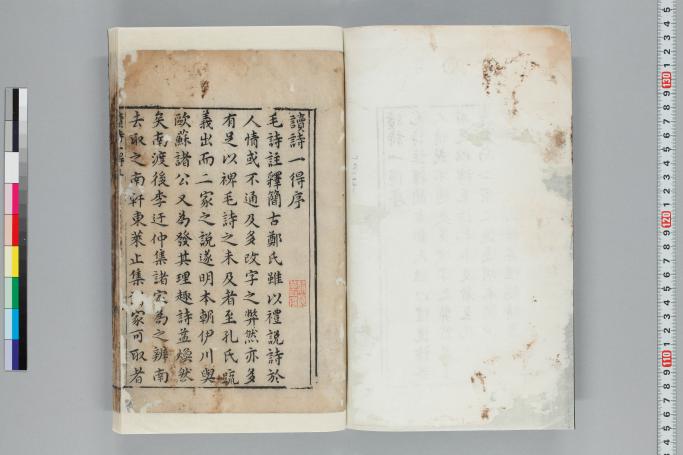 讀詩一得序
毛詩註釋簡古鄭氏雖以禮說詩於
人情或不通及多改字之弊然亦多
有足以裨毛詩之未及者至孔氏疏
義出而二家之說遂明本朝伊川與
歐蘇諸公又為發其理趣詩益煥然
矣南渡後李迂仲集諸家為之辨南
去取之南軒東萊止集家可取者
130
120
110